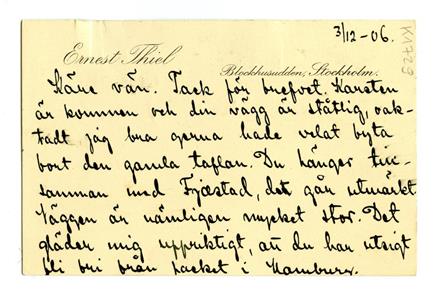 3/12-06.
K1729
Ernest Thiel
Blockhusudden, Stockholm.
Käre vän. Tack för brefvet. Karsten
är kommen och din vägg är ståtlig, oak-
tadt jag bra gerna hade velat byta
bort den gamla taflan. Du hänger till-
samman med Fjæstad, det går utmärkt
Väggen är nämligen mycket stor. Det
gläder mig uppriktigt, att du har utsigt
bli fri från packet i Hamburg.